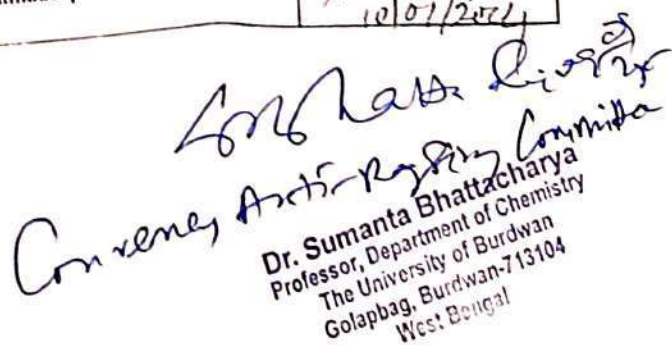 10/01/2024
Convener, Anti-Ragging Committee
Dr. Sumanta Bhattacharya
Professor, Department of Chemistry
The University of Burdwan
Golapbag, Burdwan-713104
West Bengal